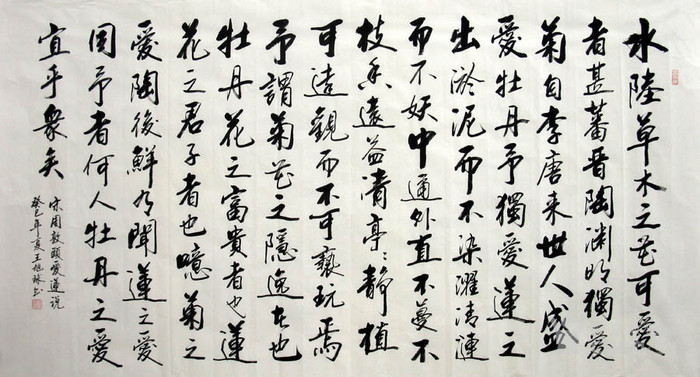 水陸草木之花可愛
者甚蕃晋陶渊明獨愛
菊自李唐来世人盛
愛牡丹予獨愛蓮之
出淤泥而不染濯清漣
而不妖中通外直不蔓不
枝香遠益清亭〻静植
可遠觀而不可褻玩焉
予謂菊花之隱逸者也
牡丹花之富貴者也蓮
花之君子者也噫菊之
愛陶後鮮有聞蓮之愛
同予者何人牡丹之愛
宜乎衆矣
宋周敦頤愛蓮说
癸巳年夏王旭